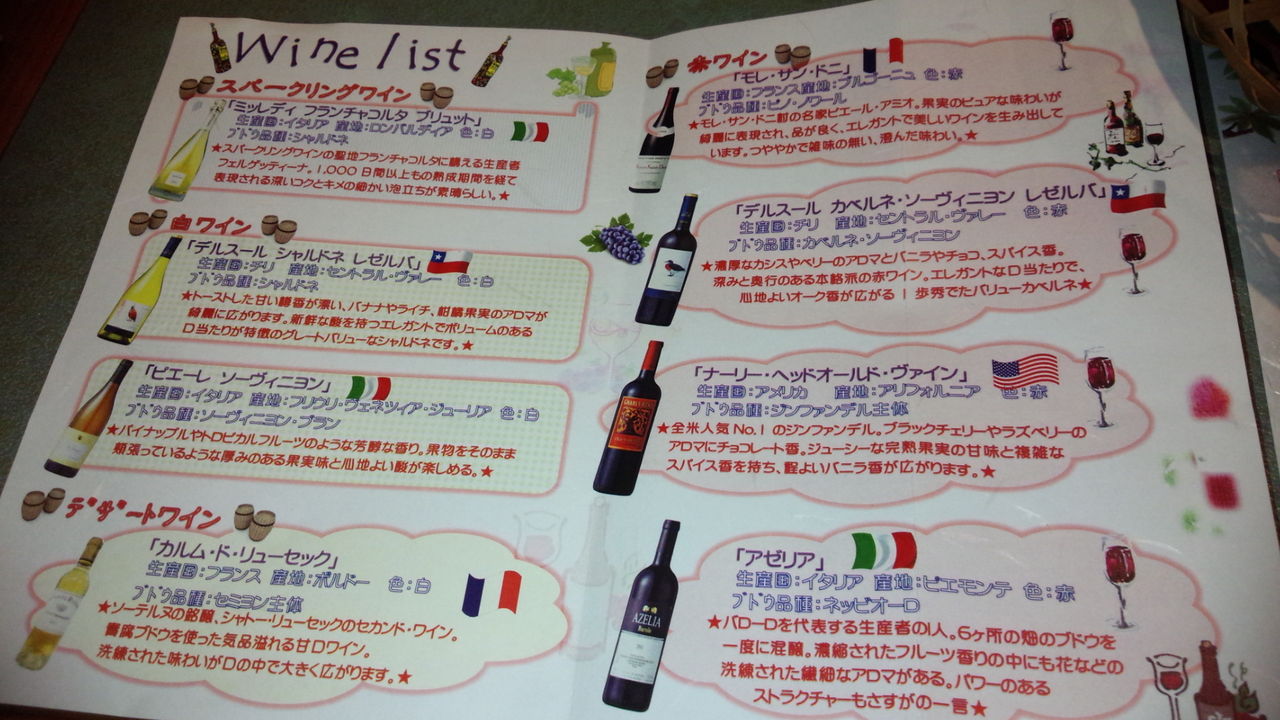 Wine list
スパークリングワイン
「ミッレディ フランチャコルタ ブリュット」
生産国:イタリア 産地:ロンバルディア 色:白
ブドウ品種:シャルドネ
★スパークリングワインの聖地フランチャコルタに構える生産者
フェルゲッティーナ。1,000日間以上もの熟成期間を経て
表現される深いコクとキメの細かい泡立ちが素晴らしい。★
白ワイン
「デルスール シャルドネ レゼルバ」
生産国:チリ 産地:セントラル・ヴァレー 色:白
ブドウ品種:シャルドネ
★トーストした甘い樽香が漂い、バナナやライチ、柑橘果実のアロマが
綺麗に広がります。新鮮な酸を持つエレガントでボリュームのある
口当たりが特徴のグレートバリューなシャルドネです。★
「ピエーレ ソーヴィニヨン」
生産国:イタリア 産地:フリウリ・ヴェネツィア・ジューリア 色:白
ブドウ品種:ソーヴィニヨン・ブラン
★パイナップルやトロピカルフルーツのような芳醇な香り。果物をそのまま
頬張っているような厚みのある果実味と心地よい酸が楽しめる。★
デザートワイン
「カルム・ド・リューセック」
生産国:フランス 産地:ボルドー 色:白
ブドウ品種:セミヨン主体
★ソーテルヌの銘醸、シャトー・リューセックのセカンド・ワイン。
貴腐ブドウを使った気品溢れる甘口ワイン。
洗練された味わいが口の中で大きく広がります。★
赤ワイン
「モレ・サン・ドニ」
生産国:フランス産地:ブルゴーニュ 色:赤
ブドウ品種:ピノ・ノワール
★モレ・サン・ドニ村の名家ピエール・アミオ。果実のピュアな味わいが
綺麗に表現され、品が良く、エレガントで美しいワインを生み出して
います。つややかで雑味の無い、澄んだ味わい。★
「デルスール カベルネ・ソーヴィニヨン レゼルバ」
生産国:チリ 産地:セントラル・ヴァレー 色:赤
ブドウ品種:カベルネ・ソーヴィニヨン
★濃厚なカシスやベリーのアロマとバニラやチョコ、スパイス香。
深みと奥行のある本格派の赤ワイン。エレガントな口当たりで、
心地よいオーク香が広がる1歩秀でたバリューカベルネ★
「ナーリー・ヘッドオールド・ヴァイン」
生産国:アメリカ 産地:アリフォルニア 色:赤
ブドウ品種:ジンファンデル主体
★全米人気No.1のジンファンデル。ブラックチェリーやラズベリーの
アロマにチョコレート香。ジューシーな完熟果実の甘味と複雑な
スパイス香を持ち、程よいバニラ香が広がります。★
「アゼリア」
生産国:イタリア 産地:ピエモンテ 色:赤
ブドウ品種:ネッビオーロ
★バローロを代表する生産者の1人。6ヶ所の畑のブドウを
一度に混醸。濃縮されたフルーツ香りの中にも花などの
洗練された繊細なアロマがある。パワーのある
ストラクチャーもさすがの一言★
AZELIA
Barolo